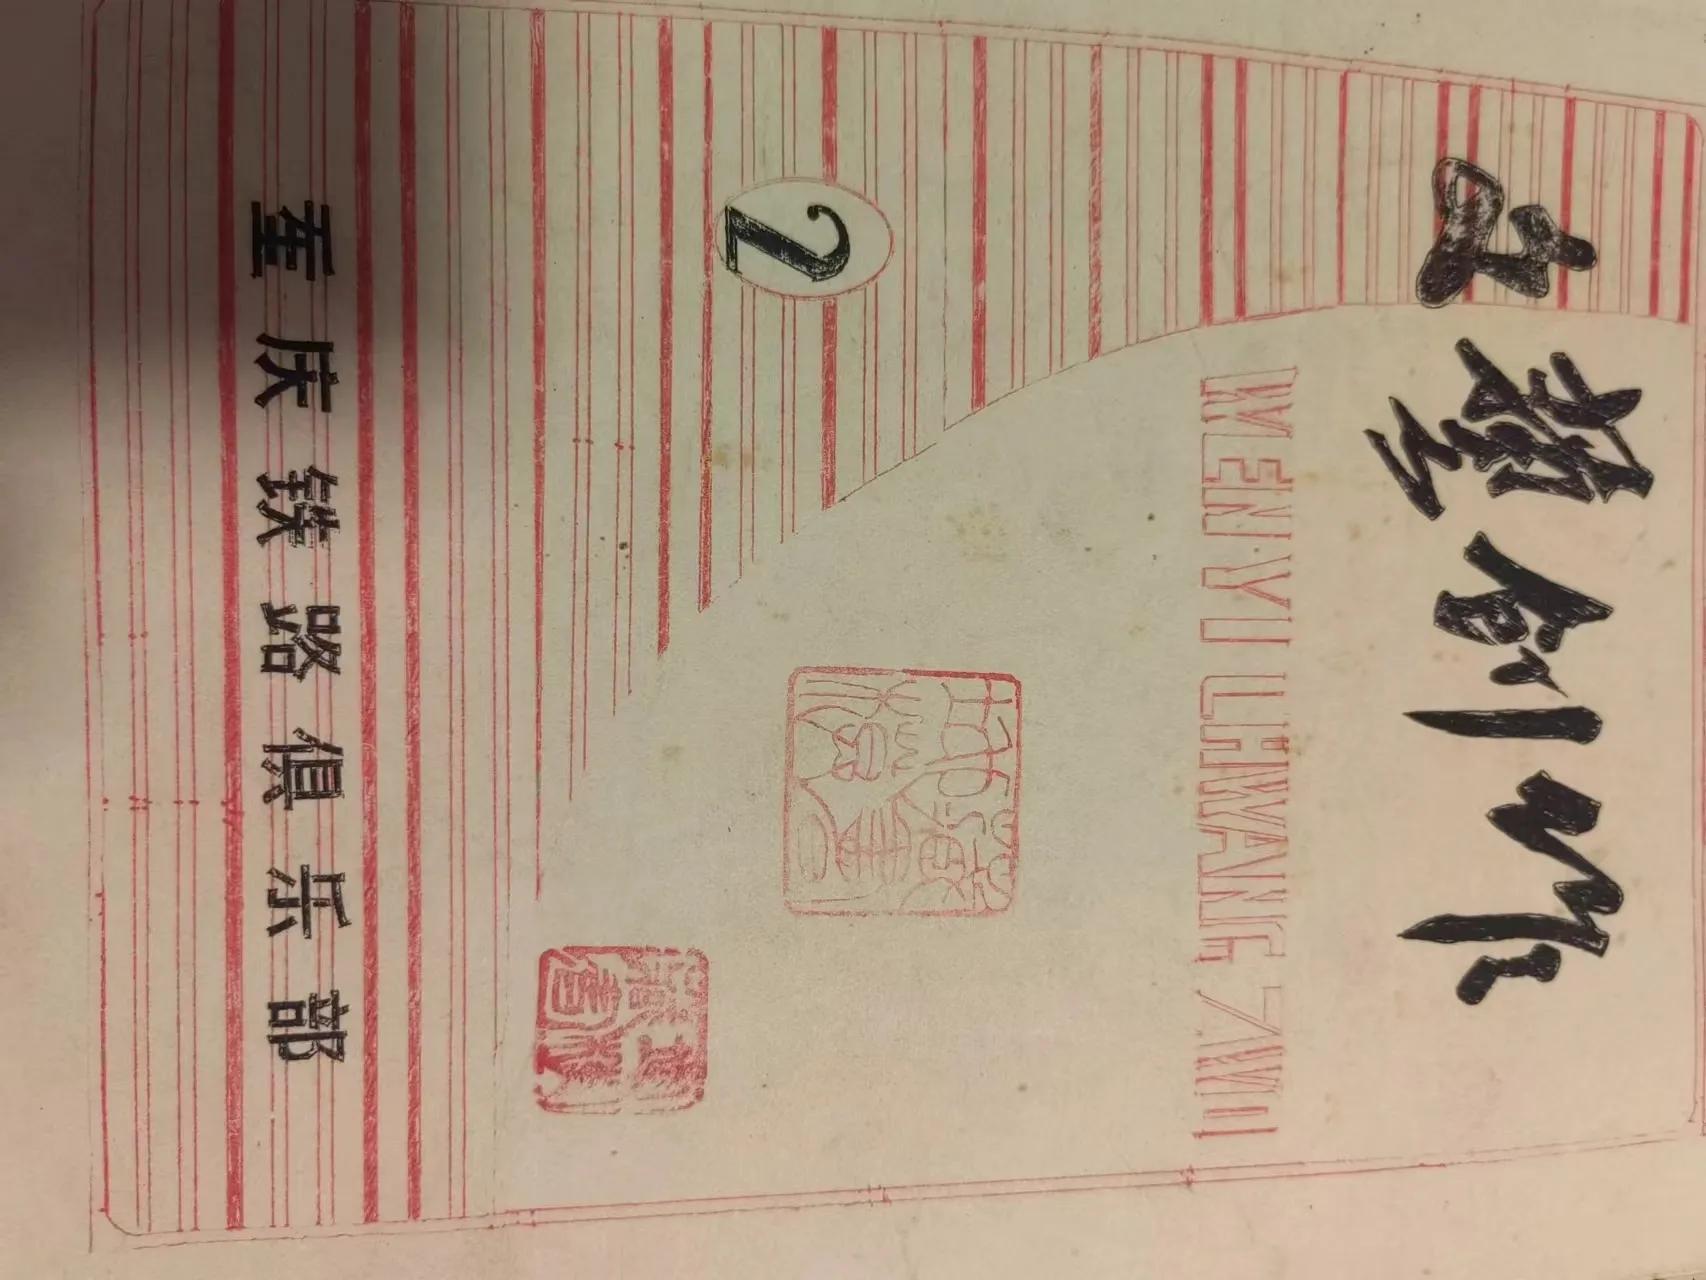 文藝创作
WENYI CHUANG ZUO
2
重庆铁路俱乐部